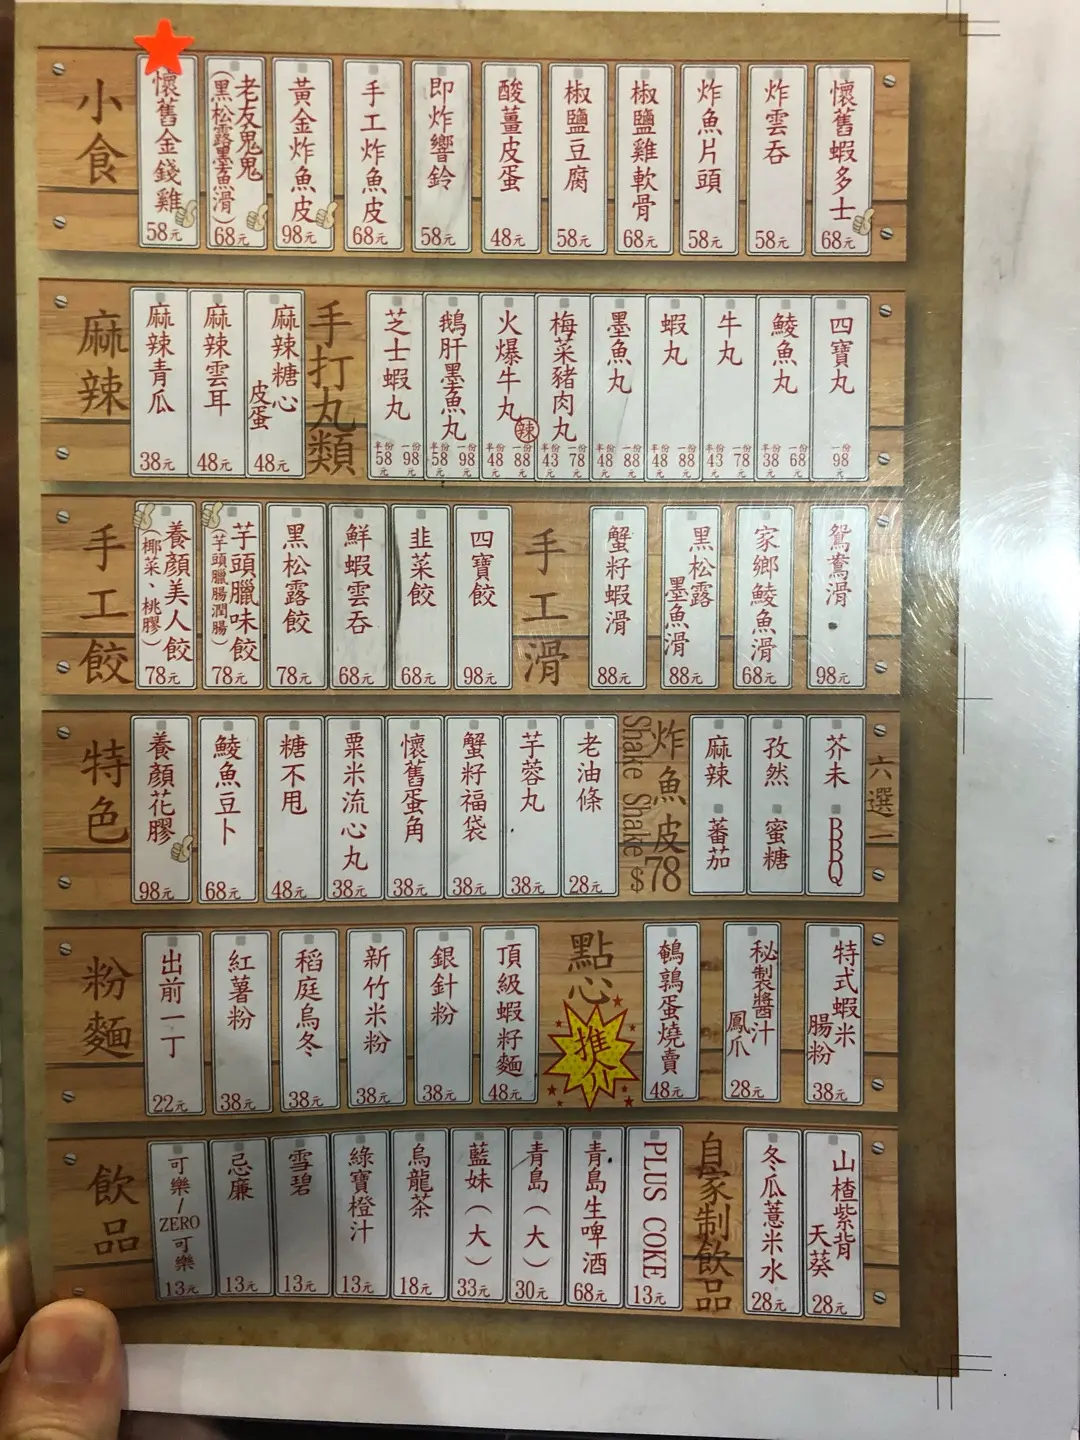 小食
懷舊金錢雞 58元
老友鬼鬼 (黑松露墨魚滑) 68元
黃金炸魚皮 98元
手工炸魚皮 68元
即炸響鈴 58元
酸薑皮蛋 48元
椒鹽豆腐 58元
椒鹽雞軟骨 68元
炸魚片頭 58元
炸雲吞 58元
懷舊蝦多士 68元
麻辣
麻辣青瓜 38元
麻辣雲耳 48元
麻辣糖心皮蛋 48元
手打丸類
芝士蝦丸 半份58 一份98元
鵝肝墨魚丸 半份58 一份98元
火爆牛丸 辣 半份48 一份88元
梅菜豬肉丸 半份43 一份78元
墨魚丸 半份48 一份88元
蝦丸 半份48 一份88元
牛丸 半份43 一份78元
鯪魚丸 半份38 一份68元
四寶丸 一份98元
手工餃
養顏美人餃 (椰菜、桃膠) 78元
芋頭臘味餃 (芋頭臘腸潤腸) 78元
黑松露餃 78元
鮮蝦雲吞 68元
韭菜餃 68元
四寶餃 98元
手工滑
蟹籽蝦滑 88元
黑松露墨魚滑 88元
家鄉鯪魚滑 68元
鴛鴦滑 98元
特色
養顏花膠 98元
鯪魚豆卜 68元
糖不甩 48元
粟米流心丸 38元
懷舊蛋角 38元
蟹籽福袋 38元
芋蓉丸 38元
老油條 28元
Shake Shake
炸魚皮
$78
麻辣 蕃茄
孜然 蜜糖
芥末 BBQ
六選一
粉麵
出前一丁 22元
紅薯粉 38元
稻庭烏冬 38元
新竹米粉 38元
銀針粉 38元
頂級蝦籽麵 48元
點心
推介
鵪鶉蛋燒賣 48元
秘製醬汁鳳爪 28元
特式蝦米腸粉 38元
飲品
可樂/ZERO可樂 13元
忌廉 13元
雪碧 13元
綠寶橙汁 13元
烏龍茶 18元
藍妹(大) 33元
青島(大) 30元
青島生啤酒 68元
PLUS COKE 13元
自家制飲品
冬瓜薏米水 28元
山楂紫背天葵 28元